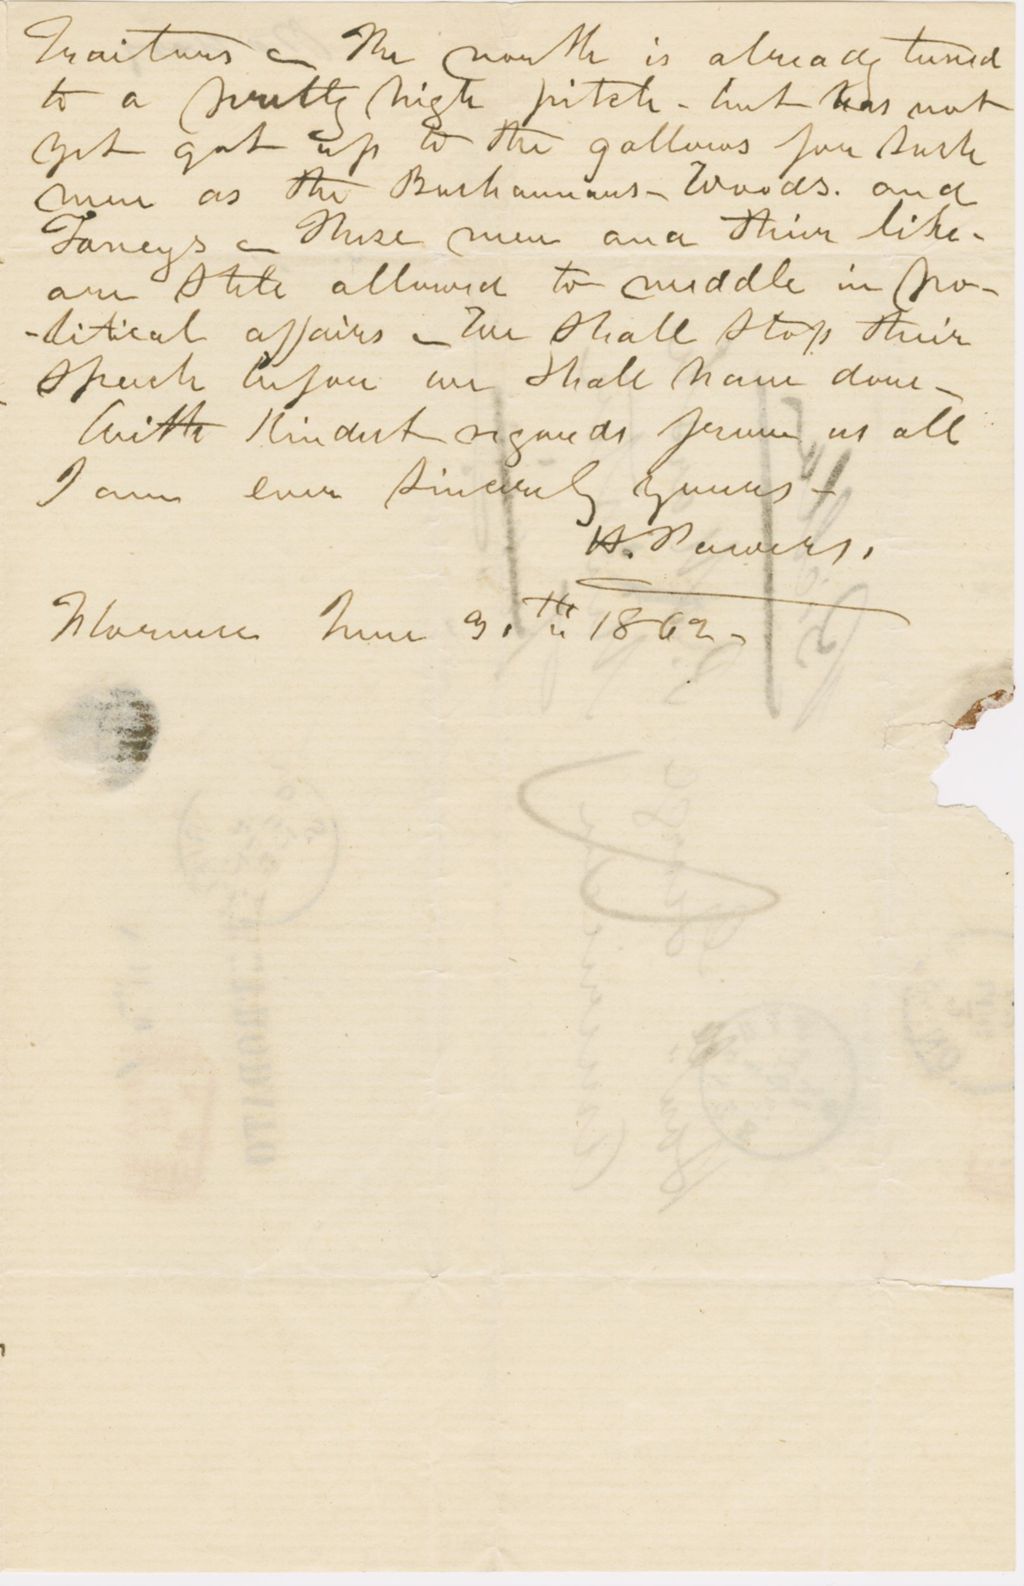 Traitors – The north is already tuned
to a pretty high pitch - but has not
yet got up to the gallows for such
men as the Buchannans - Woods. and
Taneys – These men and their like -
are still allowed to meddle in po-
-litical affairs – We shall stop their
speech before we shall have done -
With Kindest regards from us all
I am ever sincerely yours -
H. Powers.
Florence June 3.th 1862 -